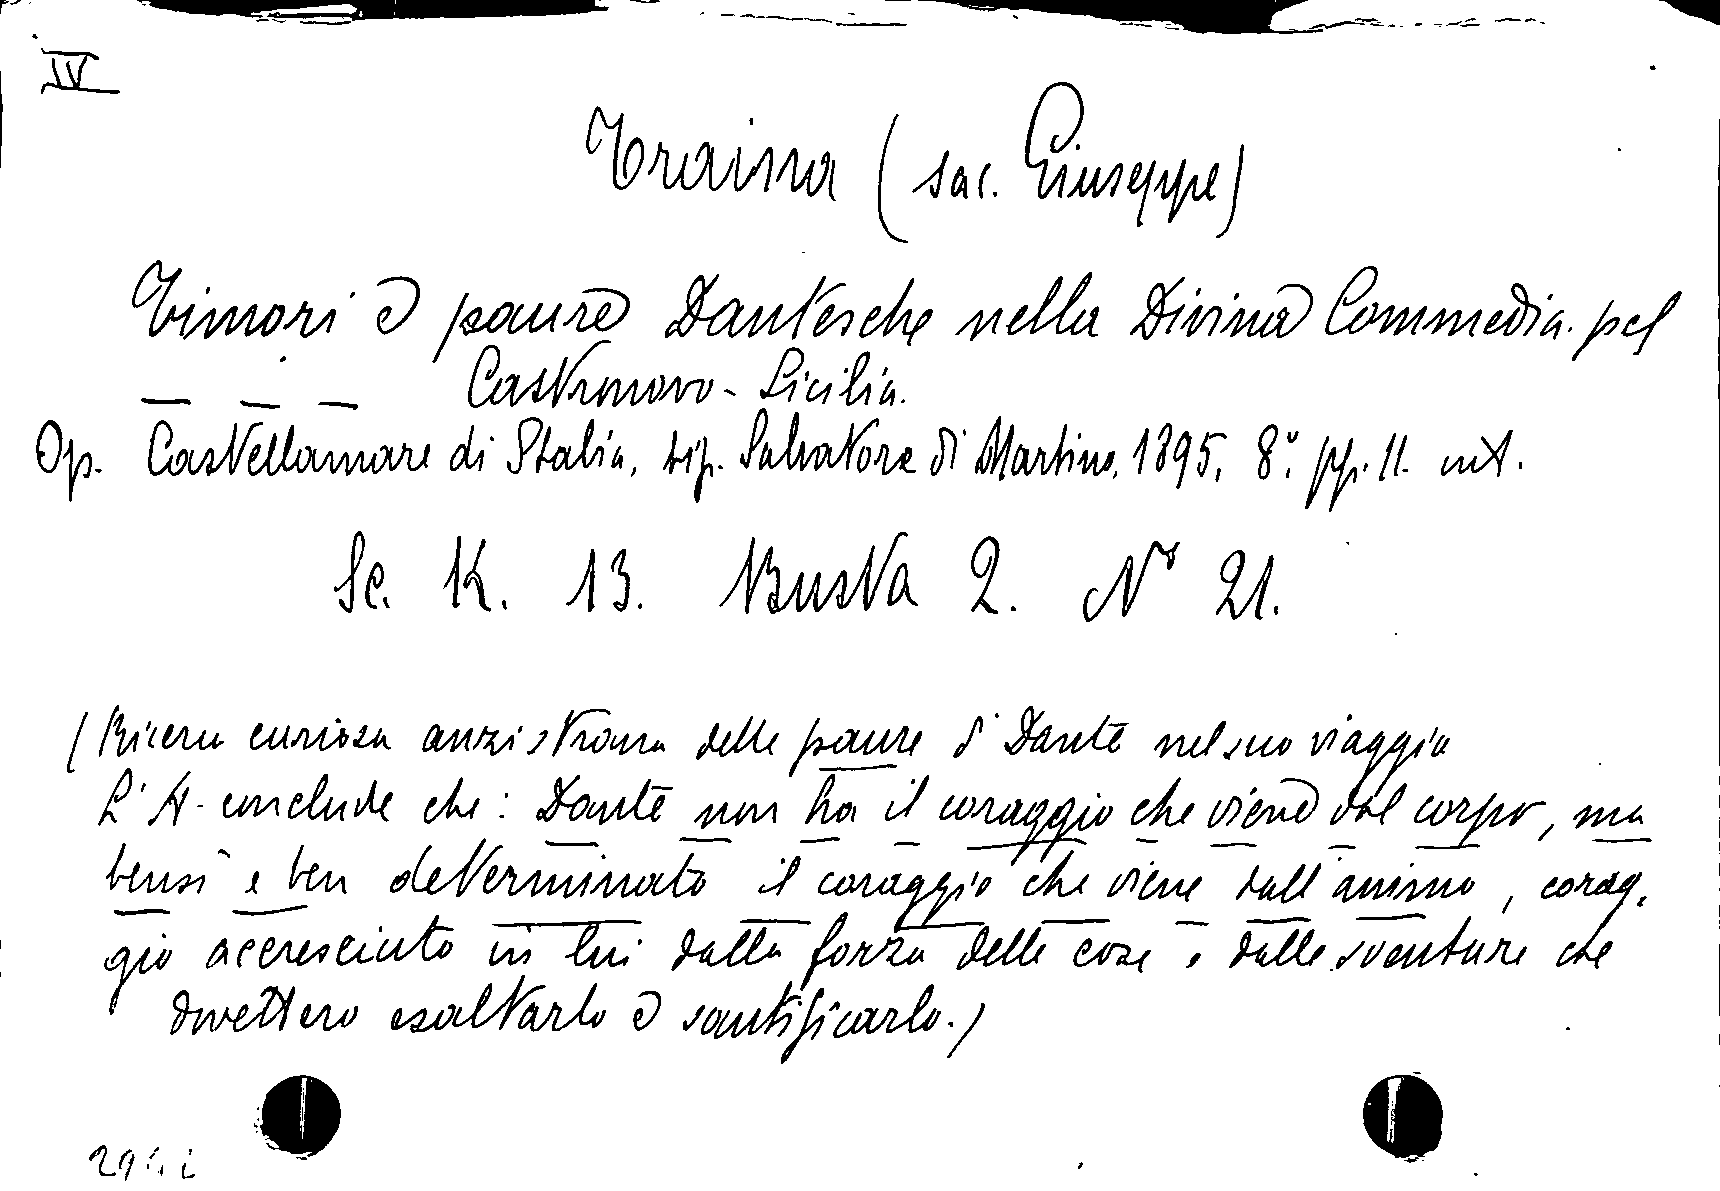 IV
Traina (sac. Giuseppe)
Timori e paure Dantesche nella Divina Commedia. pel
— — — Castronovo - Sicilia.
Op. Castellamare di Stabia, tip. Salvatore di Martino, 1895, 8° pp. 11. int.
Sc. K. 13. Busta 2. N° 21.
(Ricerca curiosa anzi strana delle paure di Dante nel suo viaggio
L'A. conclude che: Dante non ha il coraggio che viene dal corpo, ma
bensì e ben determinato il coraggio che viene dall'animo, corag-
gio accresciuto in lui dalla forza delle cose e dalle sventure che
dovettero esaltarlo e santificarlo.)